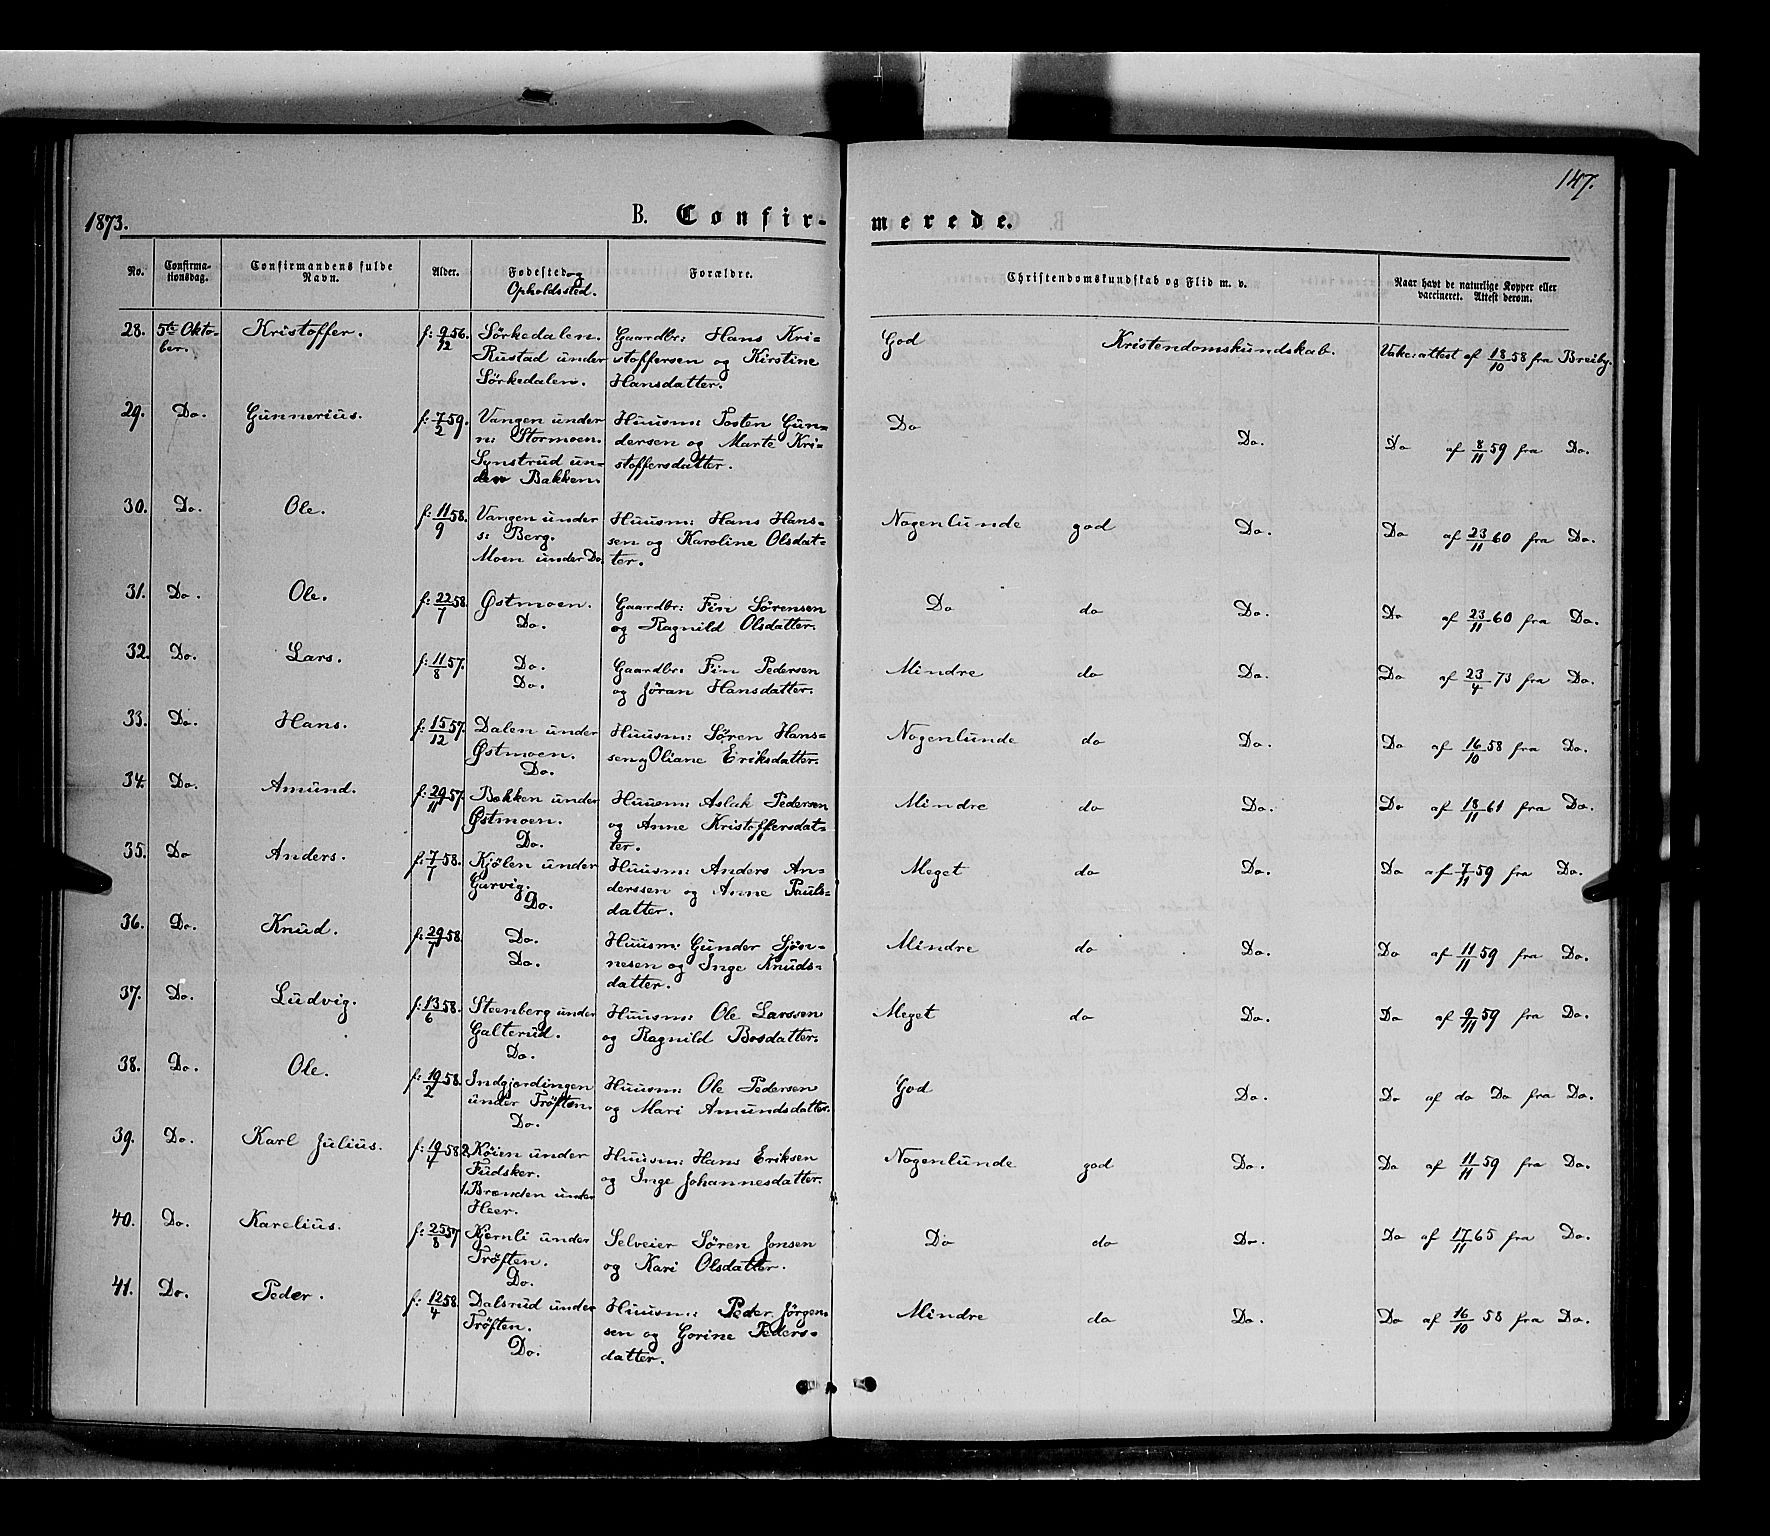 147.
1873.
B. Confir-
merede.
No.
Confirma-
tionsdag.
Confirmandens fulde
Navn.
Alder.
Fødested og
Opholdssted.
Forældre.
Christendomskundskab og Flid m. v.
Naar havt de naturlige Kopper eller
vaccineret. Attest derom.
28. 5te Okto-
ber. Kristoffer. f: 9/12 56. Sörkedalen.
Rustad under
Sörkedalen. Gaardbr: Hans Kri-
stoffersen og Kirstine
Hansdatter. God Kristendomskundskab. Vakc: attest af 18/10 58 fra Breiby.
29. Do. Gunnerius. f: 7/2 59. Vangen under
n: Stormoen.
Synstrud un-
der Bakken. Huusm: Tosten Gun-
dersen og Marte Kri-
stoffersdatter. Do Do. Do af 8/11 59 fra Do.
30. Do. Ole. f: 11/9 58. Vangen under
s: Berg.
Moen under Do. Huusm: Hans Hans-
sen og Karoline Olsdat-
ter. Nogenlunde god Do. Do af 23/11 60 fra Do.
31. Do. Ole. f: 22/7 58. Østmoen.
Do. Gaardbr: Fin Sörensen
og Ragnild Olsdatter. Do do Do. Do af 23/11 60 fra Do.
32. Do. Lars. f: 11/8 57. Do.
Do. Gaardbr: Fin Pedersen
og Jöran Hansdatter. Mindre do Do. Do af 23/4 73 fra Do.
33. Do. Hans. f: 15/12 57. Dalen under
Østmoen.
Do. Huusm: Sören Hans-
sen og Oliane Eriksdatter. Nogenlunde do Do. Do af 16/10 58 fra Do.
34. Do. Amund. f: 29/11 57. Bakken under
Østmoen.
Do. Huusm: Aslak Pedersen
og Anne Kristoffersdat-
ter. Mindre do Do. Do af 18/11 61 fra Do.
35. Do Anders. f: 7/7 58. Kjölen under
Garvig.
Do. Huusm: Anders An-
derssen og Anne Pauls-
datter. Meget do Do. Do af 7/11 59 fra Do.
36. Do. Knud. f: 29/7 58. Do.
Do. Huusm: Gunder
og Inge Knuds-
datter. Mindre do Do. Do af 11/11 59 fra Do.
37. Do. Ludvig. f: 13/6 58. Steenberg under
Galterud.
Do. Huusm: Ole Larssen
og Ragnild Bosdatter. Meget do Do. Do af 9/11 59 fra Do.
38. Do. Ole. f: 19/2 58. Indgjærdingen
under Tröften.
Do. Huusm: Ole Pedersen
og Mari Amundsdatter. God Do. Do af do Do fra Do.
39. Do. Karl Julius. f: 19/4 58. 2. Köien under
Fudsker.
1. Brænden under
Heer. Huusm: Hans Eriksen
og Inge Johannesdatter. Nogenlunde god Do. Do af 11/11 59 fra Do.
40. Do. Karelius. f: 25/8 57 Kjernli under
Tröften.
Do. Selveier Sören Jonsen
og Kari Olsdatter. Do do Do. Do af 17/11 65 fra Do.
41. Do. Peder. f: 12/4 58. Dalsrud under
Tröften.
Do. Huusm: Peder Jörgen-
sen og Gorine Peders-
datter. Mindre do Do. Do af 16/10 58 fra Do.